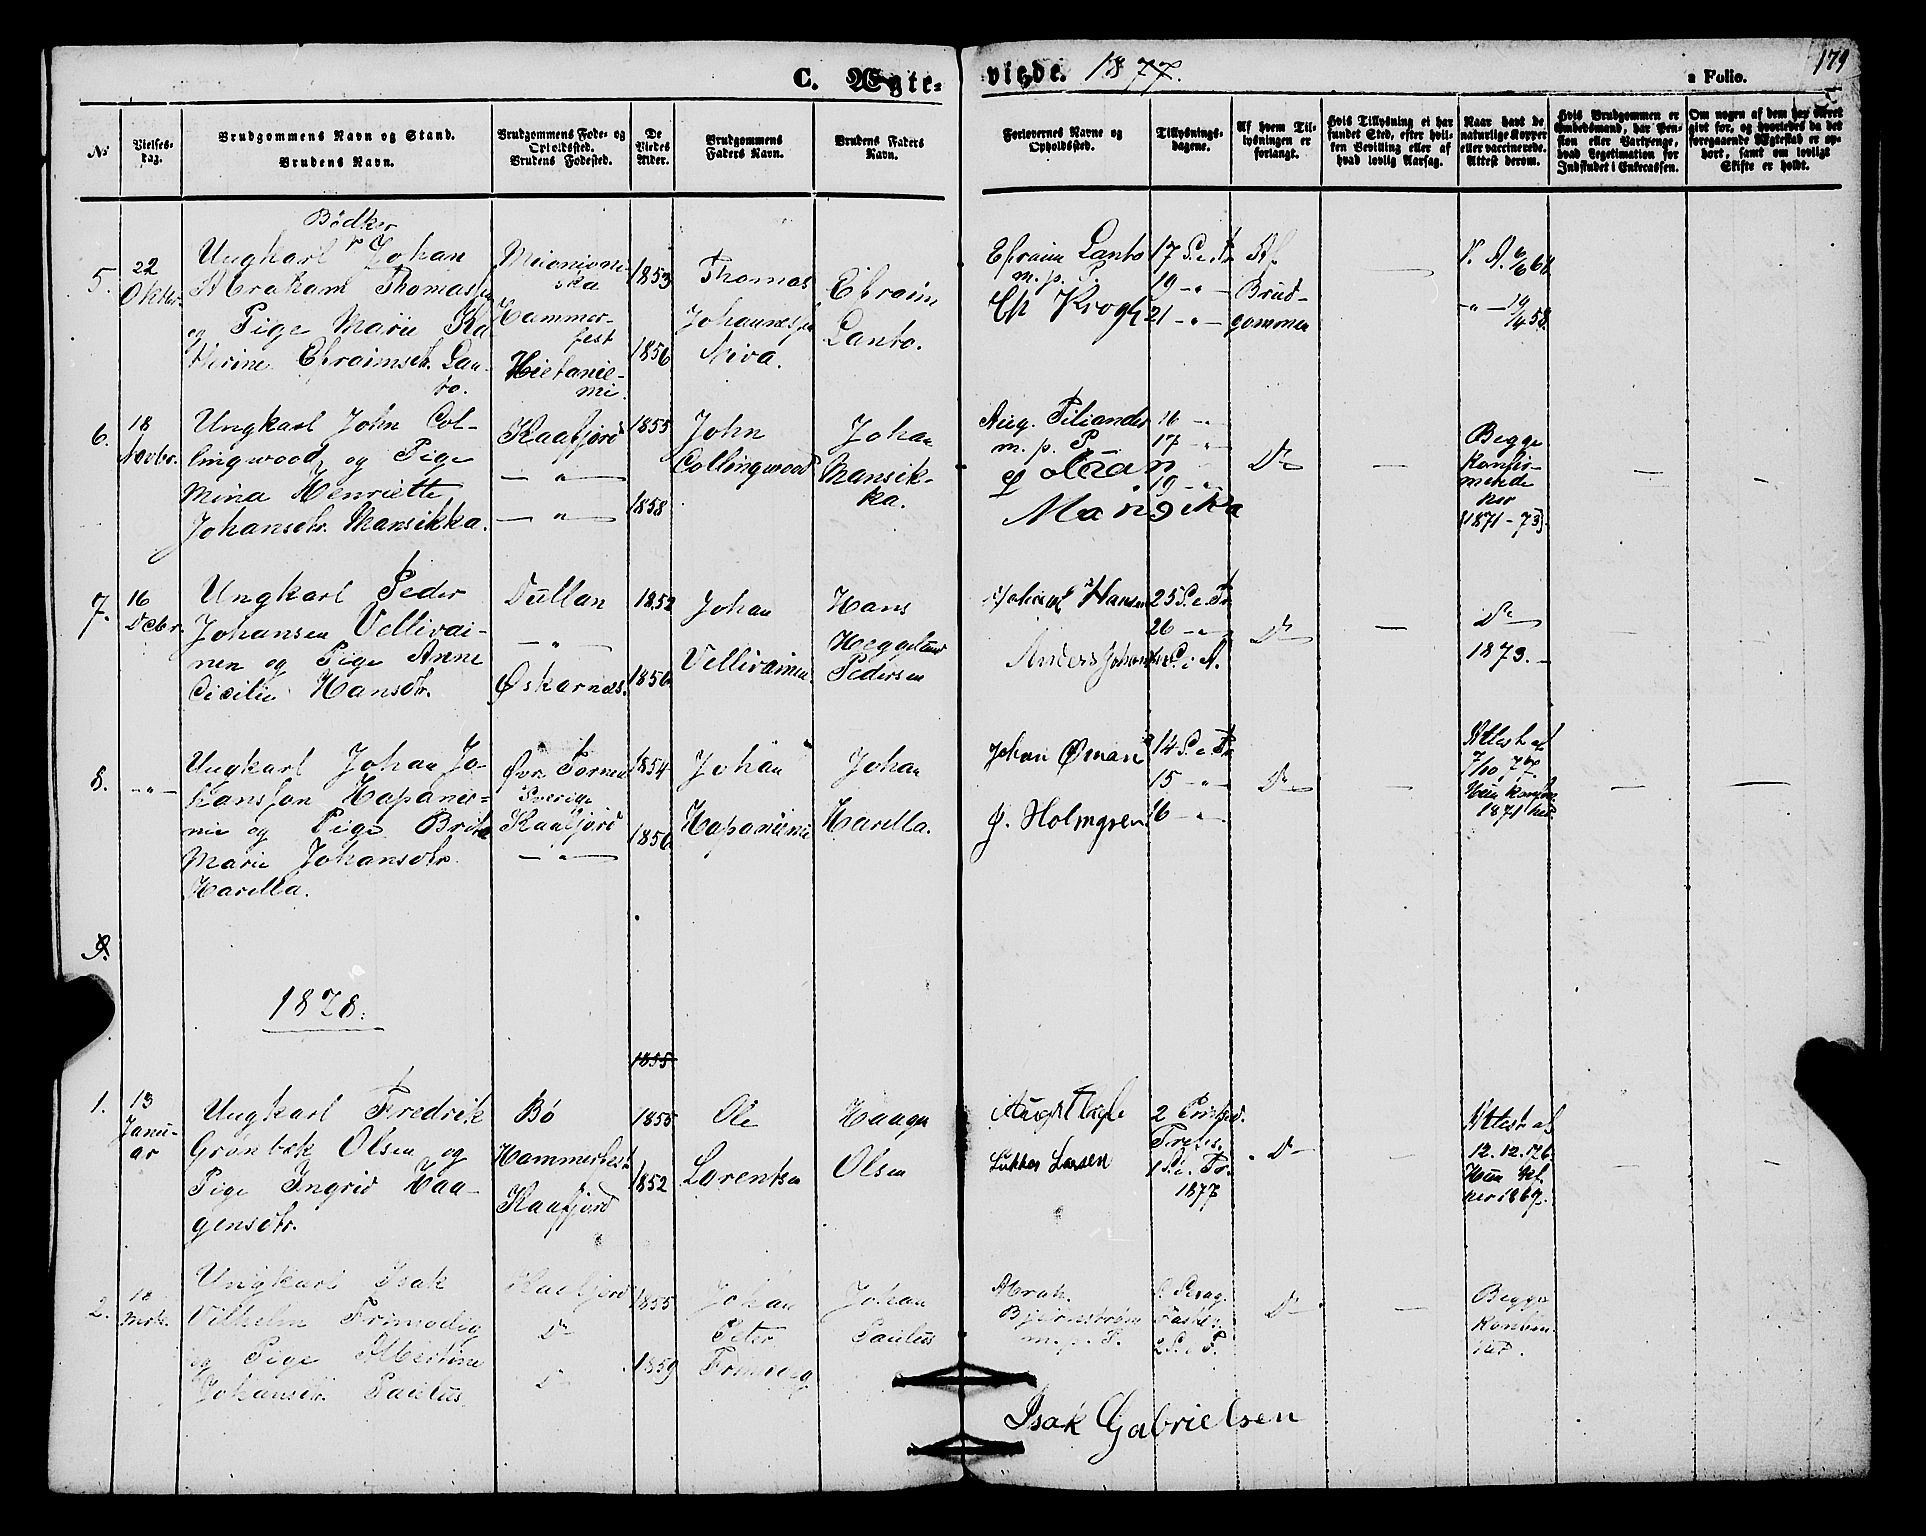 C. Ægte-
viede. 1877.
a Folio.
179
No
Vielses-
dag.
Brudgommens Navn og Stand.
Brudens Navn.
Brudgommens Føde- og
Opholdssted.
Brudens Fødested.
De
Viedes
Alder.
Brudgommens
Faders Navn.
Brudens Faders
Navn.
Forlovernes Navne og
Opholdssted.
Tillysnings-
dagene.
Af hvem Til-
lysningen er
forlangt.
Hvis Tillysning ei har
fundet Sted, efter hvil-
ken Bevilling eller af
hvad lovlig Aarsag.
Naar havt de
naturlige Kopper
eller vaccinerede.
Attest derom.
Hvis Brudgommen er
Embedsmand, har Pen-
sion eller Vartpenge,
hvad Legitimation for
Indskudet i Enkecassen.
Om nogen af dem har været
givt for, og hvorledes da det
foregaaende Ægteskab er op-
hørt, samt om lovligt
Skifte er holdt.
5.
22
Oktbr.
Bødker
Ungkarl Johan
Abraham Thomassen
og Pige Marie Ka
therine Efraimsdtr. Lan-
to.
Muonioni-
ska
Hammer-
fest
Hietanie-
mi.
1853
1856
Thomas
Johannessen
Niva.
Efraim
Lanto.
Efraim Lanto
m. p. P.
CM Krogh
17 S. e. Tr.
19 - " -
21 - " -
Af
Brud-
gommen
V. A. 6/6 66
- " - 19/4 58.
6.
18
Novbr.
Ungkarl John Col-
lingwood og Pige
Mina Henriette
Johansdtr. Mansikka.
Kaafjord
- " -
- " -
1855
1858
John
Collingwood
Johan
Mansik-
ka.
Aug. Piliander
m. p. P.
Johan
Mansikka
16 - " -
17 - " -
19 - " -
Do
Begge
konfir-
merede
her
(1871-73).
7.
16
Decbr.
Ungkarl Peder
Johansen Vellivai-
nen og Pige Anne
Cecilie Hansdtr.
Dullan
- " -
Øskarnæs.
1852
1856
Johan
Vellivainen.
Hans
Heggelund
Pedersen
Johan Hansen
Anders Johansen
25 S. e. Tr.
26 - " -
S. i A.
Do
Do
1873.
8.
- " -
Ungkarl Johan Jo-
hanssen Hapanie-
mie og Pige Brita
Marie Johansdtr.
Harella.
Øvr. Tornea
Sverige
Kaafjord
- " -
1854
1856
Johan
Hapaniemi
Johan
Harella.
Johan Øman
J. Holmgren
14 S. e. Tr.
15 - " -
16 - " -
Do
Attest af
7/10 77
Hun konfir.
1871 her.
9.
1878.
1855
1.
13
Janu-
ar
Ungkarl Fredrik
Grønbek Olsen og
Pige Ingrid Haa-
gensdtr.
Bø
Hammerfest
Kaafjord
1855
1852
Ole
Lorentsen
Haagen
Olsen
Lukkas Larsen
1 S. e. Tr.
1877
Do
Attest af
12.12.76
Hun kf.
her 1869.
2.
Ungkarl Isak
Vilhelm Frimodig
og Pige Albertine
Johansdtr. Paulus
Kaafjord
Do
Do
1855
1859
Johan
Peter
Frimodig
Johan
Paulus
Abrah.
Bjørnstrøm
m. p. P.
Isak Gabrielsen
Do
Begge
her.